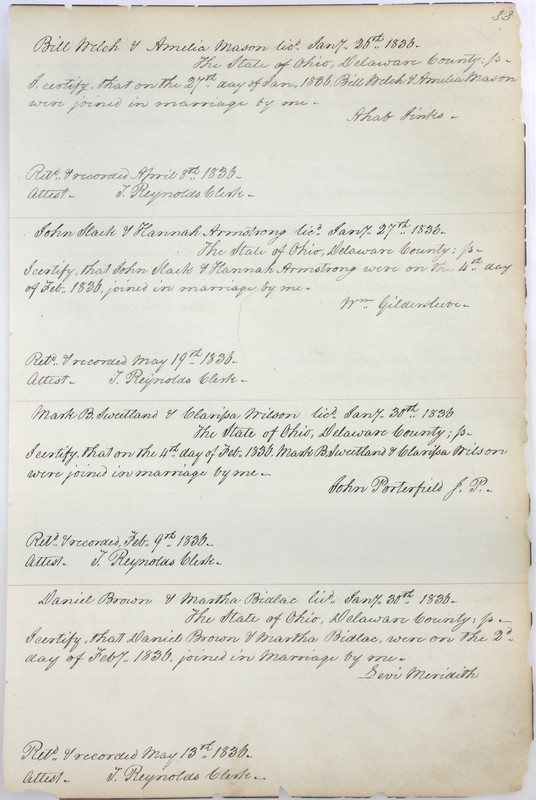 33
Bill Welch & Amelia Mason licd. Jany. 26th 1836.
The State of Ohio, Delaware County; ss.
I certify, that on the 27th day of Jan. 1836. Bill Welch & Amelia Mason
were joined in marriage by me.
Ahab Jinks.
Retd. & recorded April 8th 1836.
Attest. T. Reynolds Clerk.
John Slack & Hannah Armstrong licd. Jany. 27th 1836.
The State of Ohio, Delaware County; ss.
I certify, that John Slack & Hannah Armstrong were on the 4th day
of Feb. 1836, joined in marriage by me.
Wm Gildersleeve.
Retd. & recorded May 19th 1836.
Attest. T. Reynolds Clerk.
Mark B. Sweetland & Clarissa Wilson licd. Jany. 30th 1836
The State of Ohio, Delaware County; ss.
I certify, that on the 4th day of Feb. 1836. Mark B. Sweetland & Clarissa Wilson
were joined in marriage by me.
John Porterfield J. P.
Retd. & recorded, Feb. 9th 1836.
Attest. T. Reynolds Clerk.
Daniel Brown & Martha Bidlac licd. Jany. 30th 1836.
The State of Ohio, Delaware County; ss.
I certify, that Daniel Brown & Martha Bidlac, were on the 2d.
day of Feby. 1836, joined in Marriage by me.
Levi Meridith
Retd. & recorded May 13th 1836.
Attest. T. Reynolds Clerk.